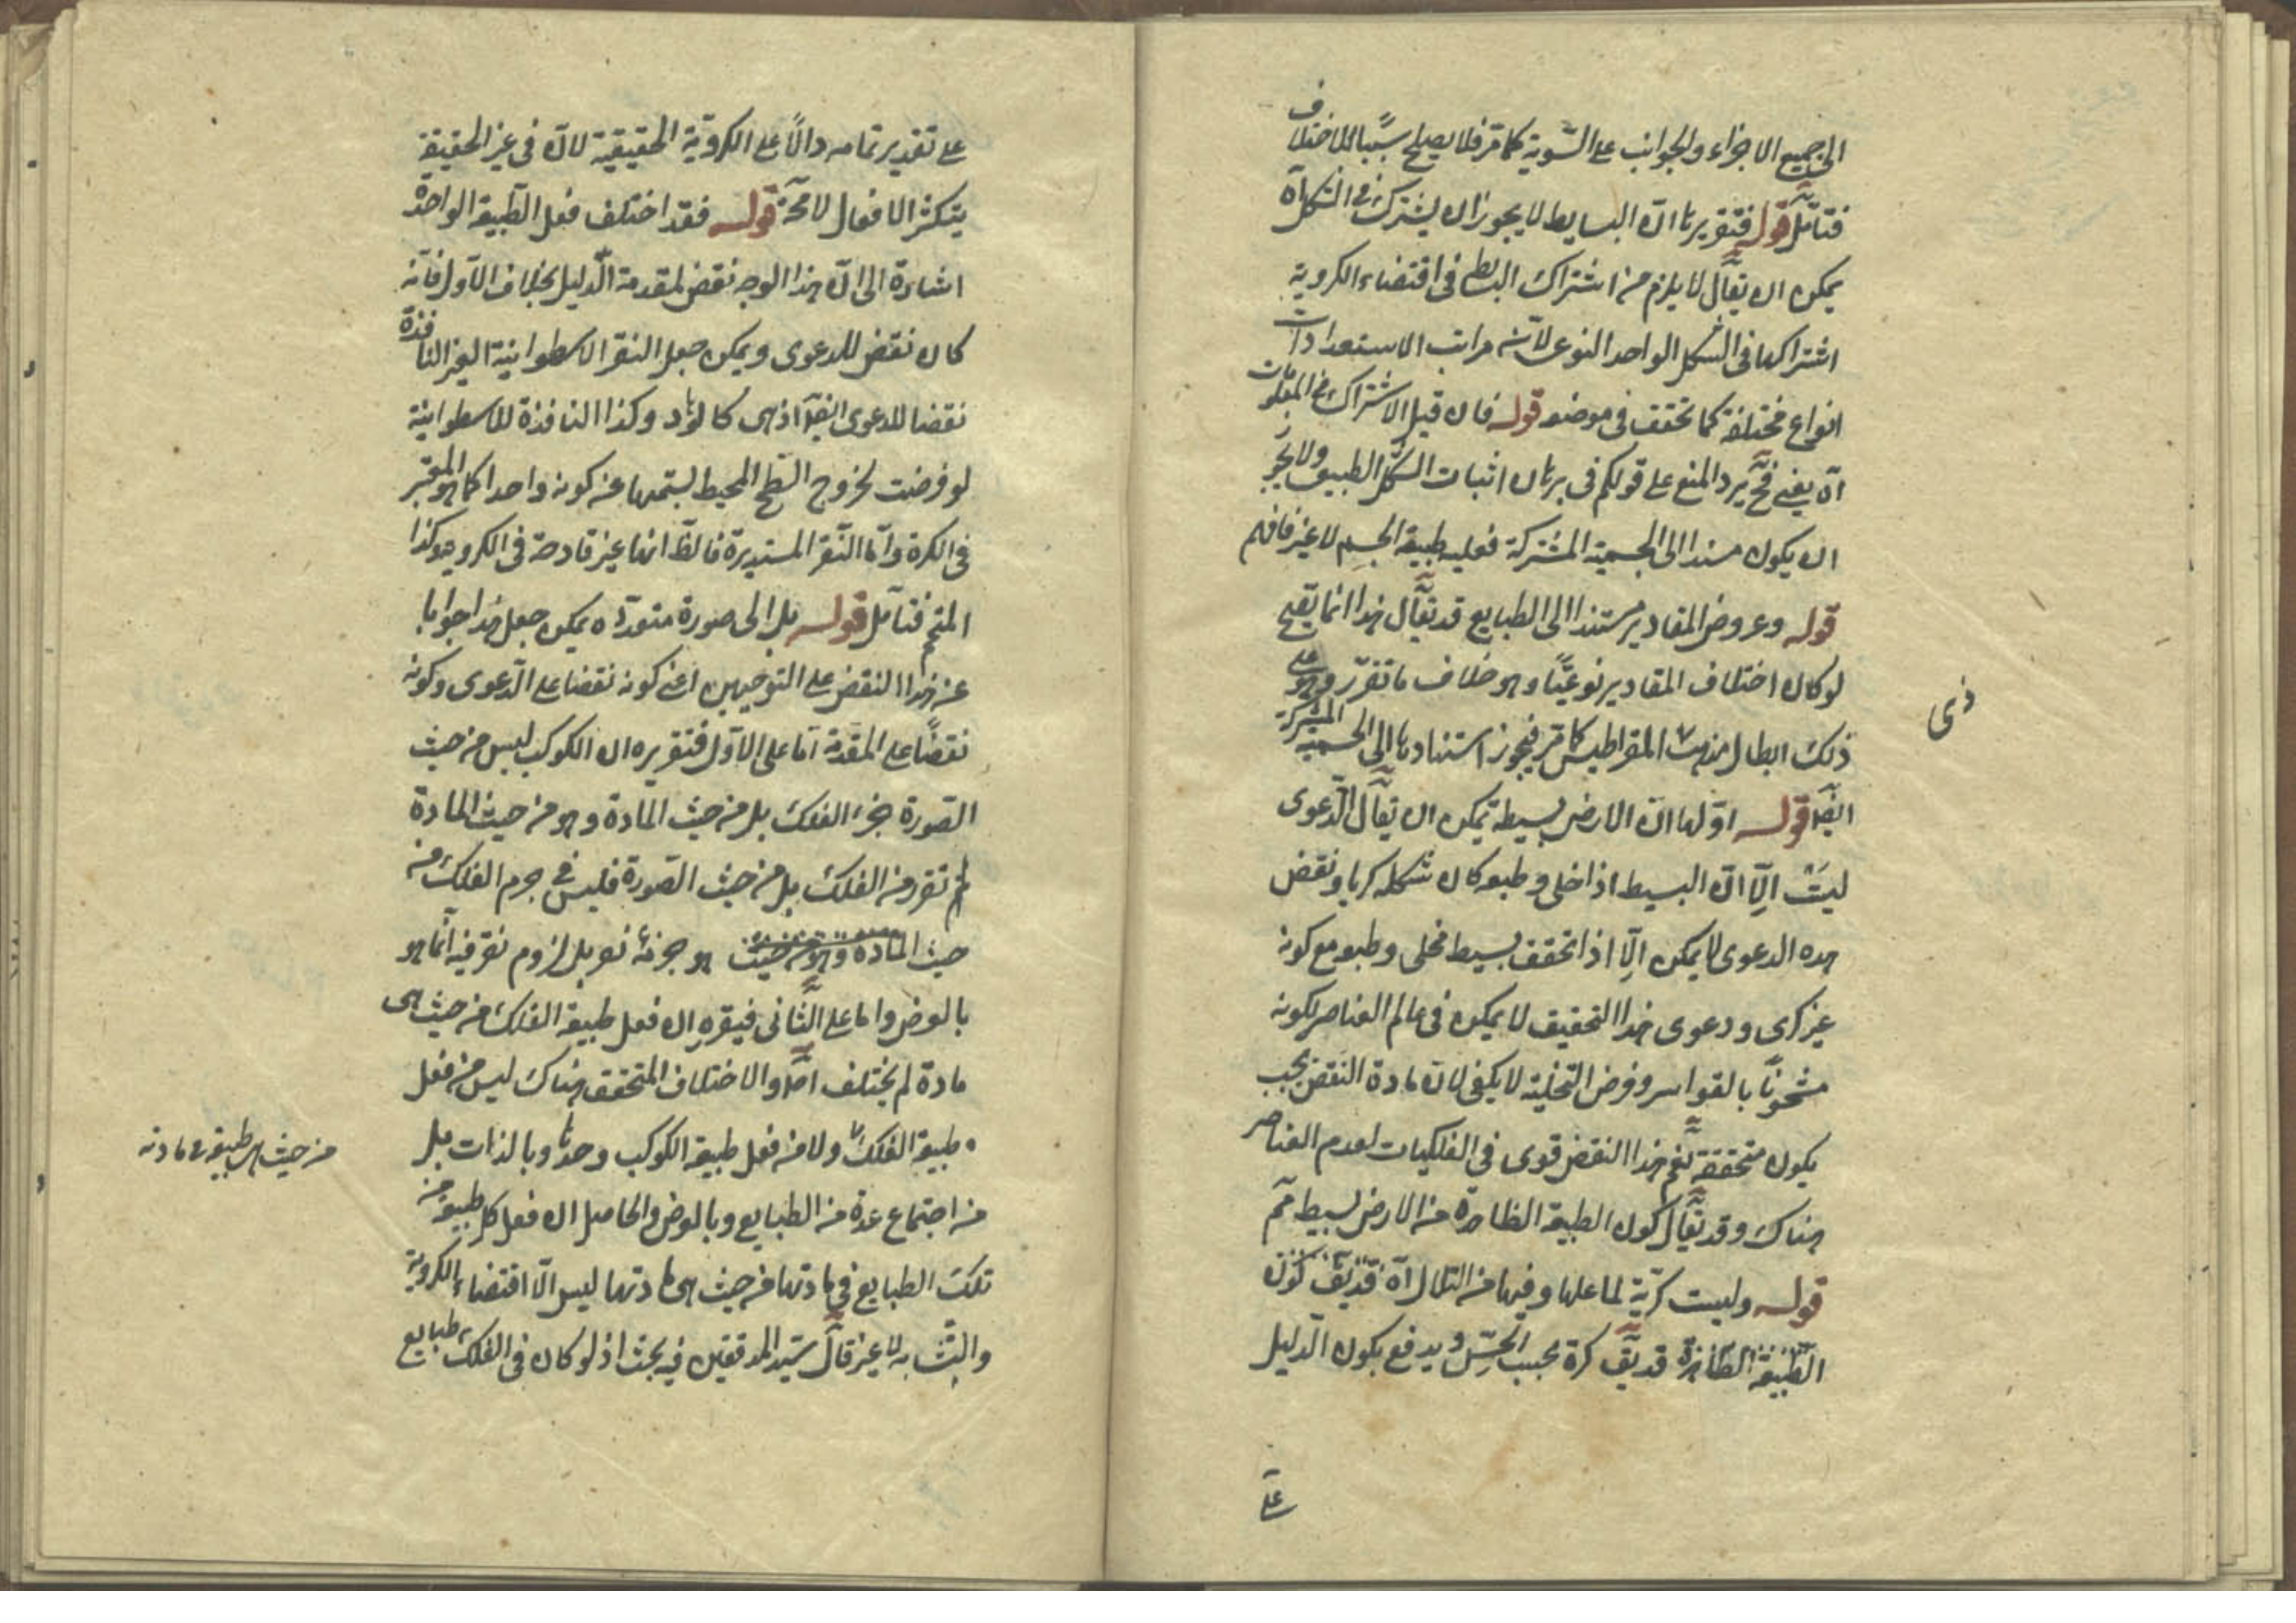 الى جميع الاجزاء والجوانب على السّوية كما مرّ فلا يصلح سببًا للاختلاف
فتأمّل قوله فتقريرها انّ البسايط لا يجوز ان يشترك فى الشكل آه
يمكن ان يقال لا يلزم من اشتراك البسايط فى اقتضاء الكروية
اشتراكها فى الشكل الواحد النوعى لانّه مراتب الاستعدادات
انواع مختلفة كما تحقق فى موضعه قوله فان قيل الاشتراك فى المعلولات
آه يعنى فح يرد المنع على قولكم فى برهان اثبات الشكل الطبيعى ولا يجوز
ان يكون مسندا الى الجسمية المشتركة فعليه طبيعة الجسم لا غير فافهم
قوله وعروض المقادير مستندا الى الطبايع قد يقال هذا انما يصح
لو كان اختلاف المقادير نوعيًّا وهو خلاف ما تقرر وعلى
ذلك ابطال مذهب ذى المقراطيس كما مرّ فيجوز استنادها الى الجسمية المشتركة
ايضا قوله اوّلها انّ الارض بسيطة يمكن ان يقال الدّعوى
ليست الّا انّ البسيط اذا خلى وطبعه كان شكله كريا ونقض
هذه الدعوى لا يمكن الّا اذا تحقق بسيط مخلى وطبعه مع كونه
غير كرى ودعوى هذا التحقيق لا يمكن فى عالم العناصر لكونه
مشحونًا بالقواسر وفرض التخلية لا يكفى لانّ مادة النقض يجب
يكون متحققة نعم هذا النقض قوى فى الفلكيات لعدم العناصر
هناك وقد يقال كون الطبيعة الظاهرة من الارض بسيط مم
قوله وليست كريّة لما عليها وفيها من التلال آه قد يق كون
الطبيعة الظاهرة قد يق كرة بحسب الحسّ ويدفع بكون الدّليل
على
ذى
على تقدير تمامه دالًا على الكرويّة الحقيقيّة لانّ فى غير الحقيقيّة
يتكثر الافعال لا محة قوله فقد اختلف فعل الطّبيعة الواحدة
اشارة الى انّ هذا الوجه نقض لمقدمة الدّليل بخلاف الاول فانّه
كان نقض للدعوى ويمكن جعل النقر الاسطوانية الغير النافذة
نقضا للدعوى ايضا اذ هى كالوهاد وكذا النافذة للاسطوانية
لو فرضت لخروج السّطح المحيط بستمها عن كونه واحدا كما هو المعتبر
فى الكرة وامّا النّقر المستديرة فالظّ انها غير قادحة فى الكروية وكذا
المتمم فتأمّل قوله بل الى صورة متعدّدة يمكن جعل هذا جوابا
عن هذا النقض على التوجيهين اعنى كونه نقضا على الدّعوى وكونه
نقضًا على المقدّمة امّا على الاوّل فتقريره ان الكوكب ليس من حيث
الصّورة جزء الفلك بل من حيث المادّة وهو من حيث المادة
لم تقرو من الفلك بل من حيث الصّورة فليس فى جرم الفلك من
حيث المادة وهو من حيث هو جزئه نعر بل لزوم نقر فيه انّما هو
بالعرض واما على الثّانى فيقره ان فعل طبيعة الفلك من حيث هى
مادة لم يختلف اصلا والاختلاف المتحقق هناك ليس من فعل
طبيعة الفلك ولا من فعل طبيعة الكوكب وحدها وبالذات بل
من اجتماع عدّة من الطبايع وبالعرض والحاصل ان فعل كل طبيعة من
تلك الطبايع فى مادتها من حيث هى مادتها ليس الّا اقتضاء الكروية
والتّشابه لا غير قال سيّد المدققين فيه بحث اذ لو كان فى الفلك طبايع
من حيث هى طبيعة ومادته